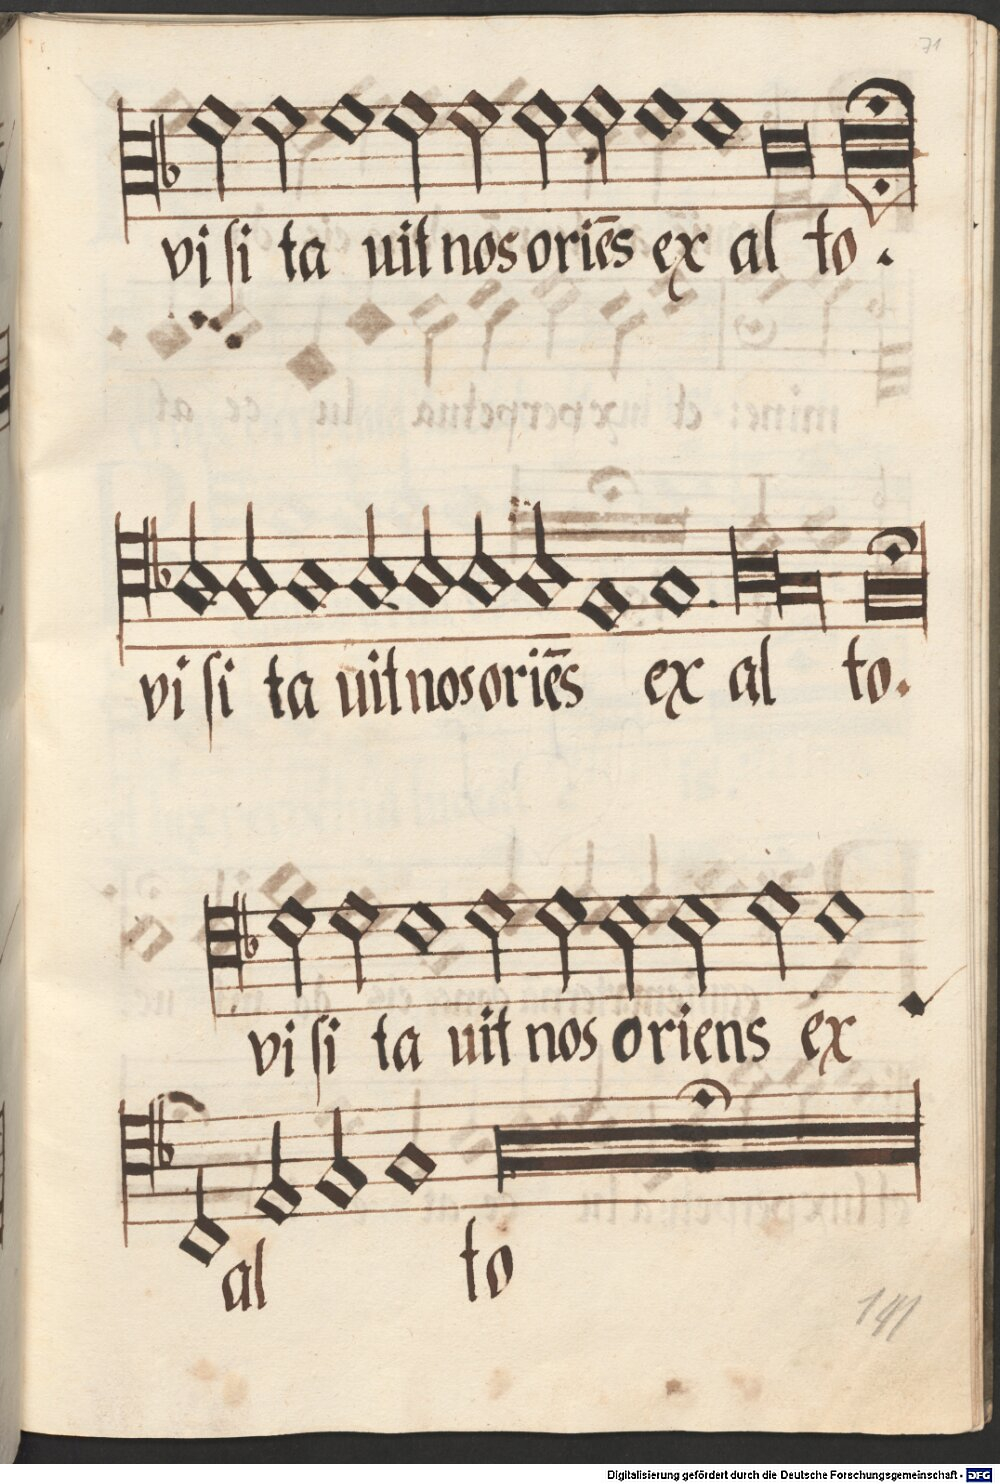 71
vi si ta uit nos oriēs ex al to.
vi si ta uit nos oriēs ex al to.
vi si ta uit nos oriens ex
al to
141
Digitalisierung gefördert durch die Deutsche Forschungsgemeinschaft - DFG